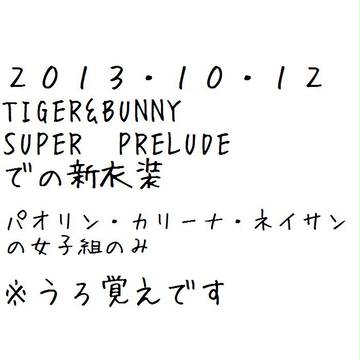 ２０１３・１０・１２
TIGER&BUNNY
SUPER　PRELUDE
での新衣装
パオリン・カリーナ・ネイサン
の女子組のみ
※うろ覚えです